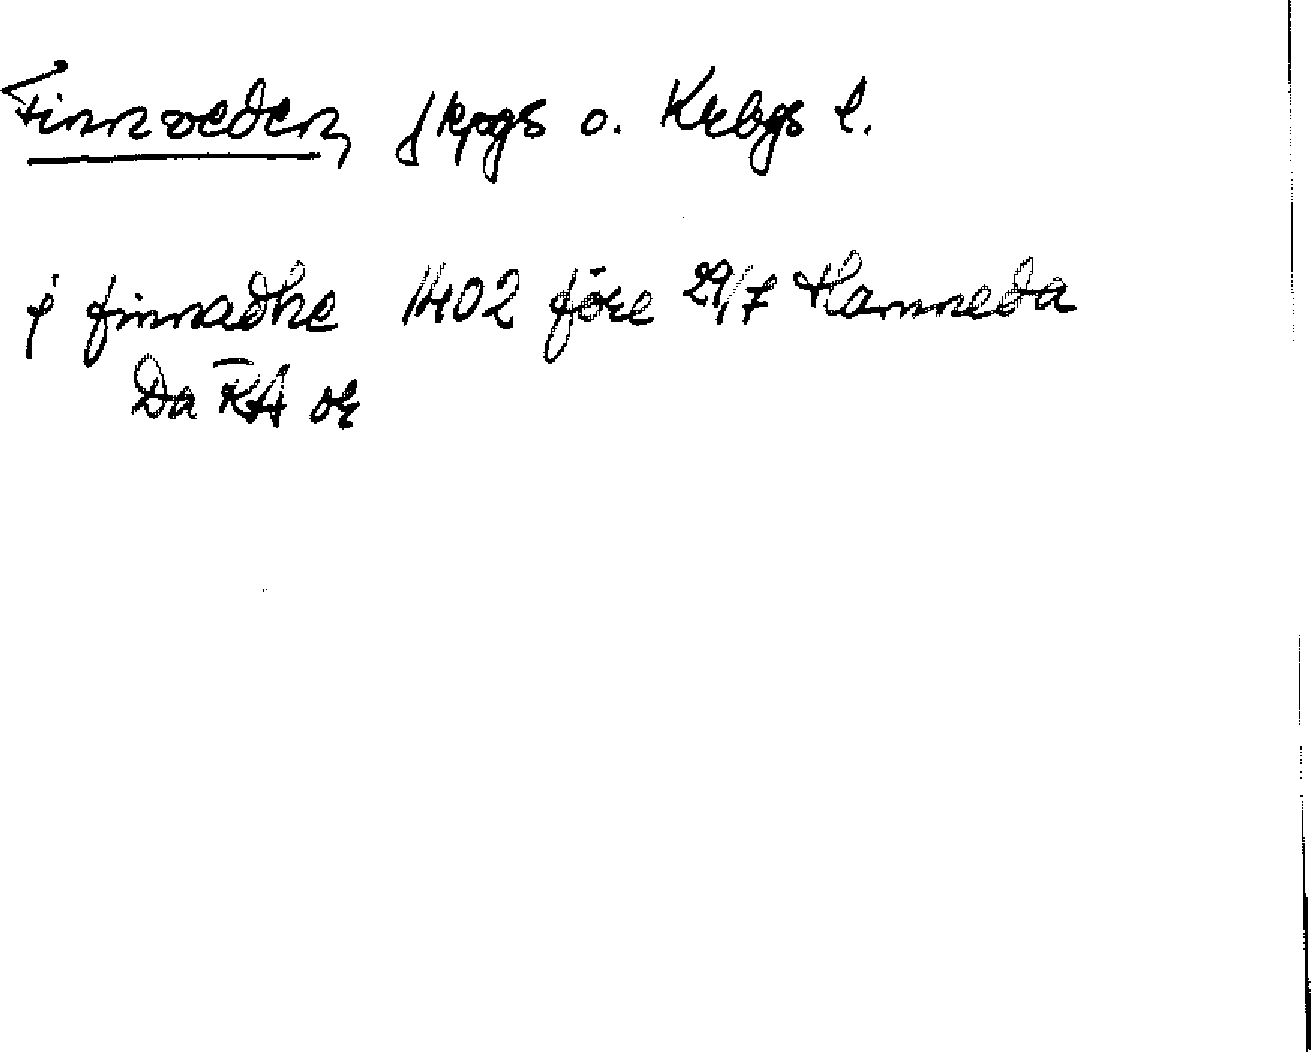 Finnveden, Jkpgs o. Krbgs l.
j finnadhe 1402 före 29/7 Hanneda
Da RA or